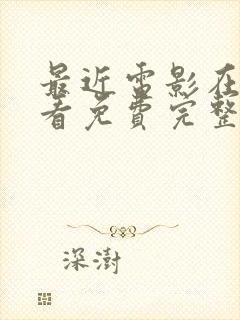 最近雷影在
看免费完整
深澍